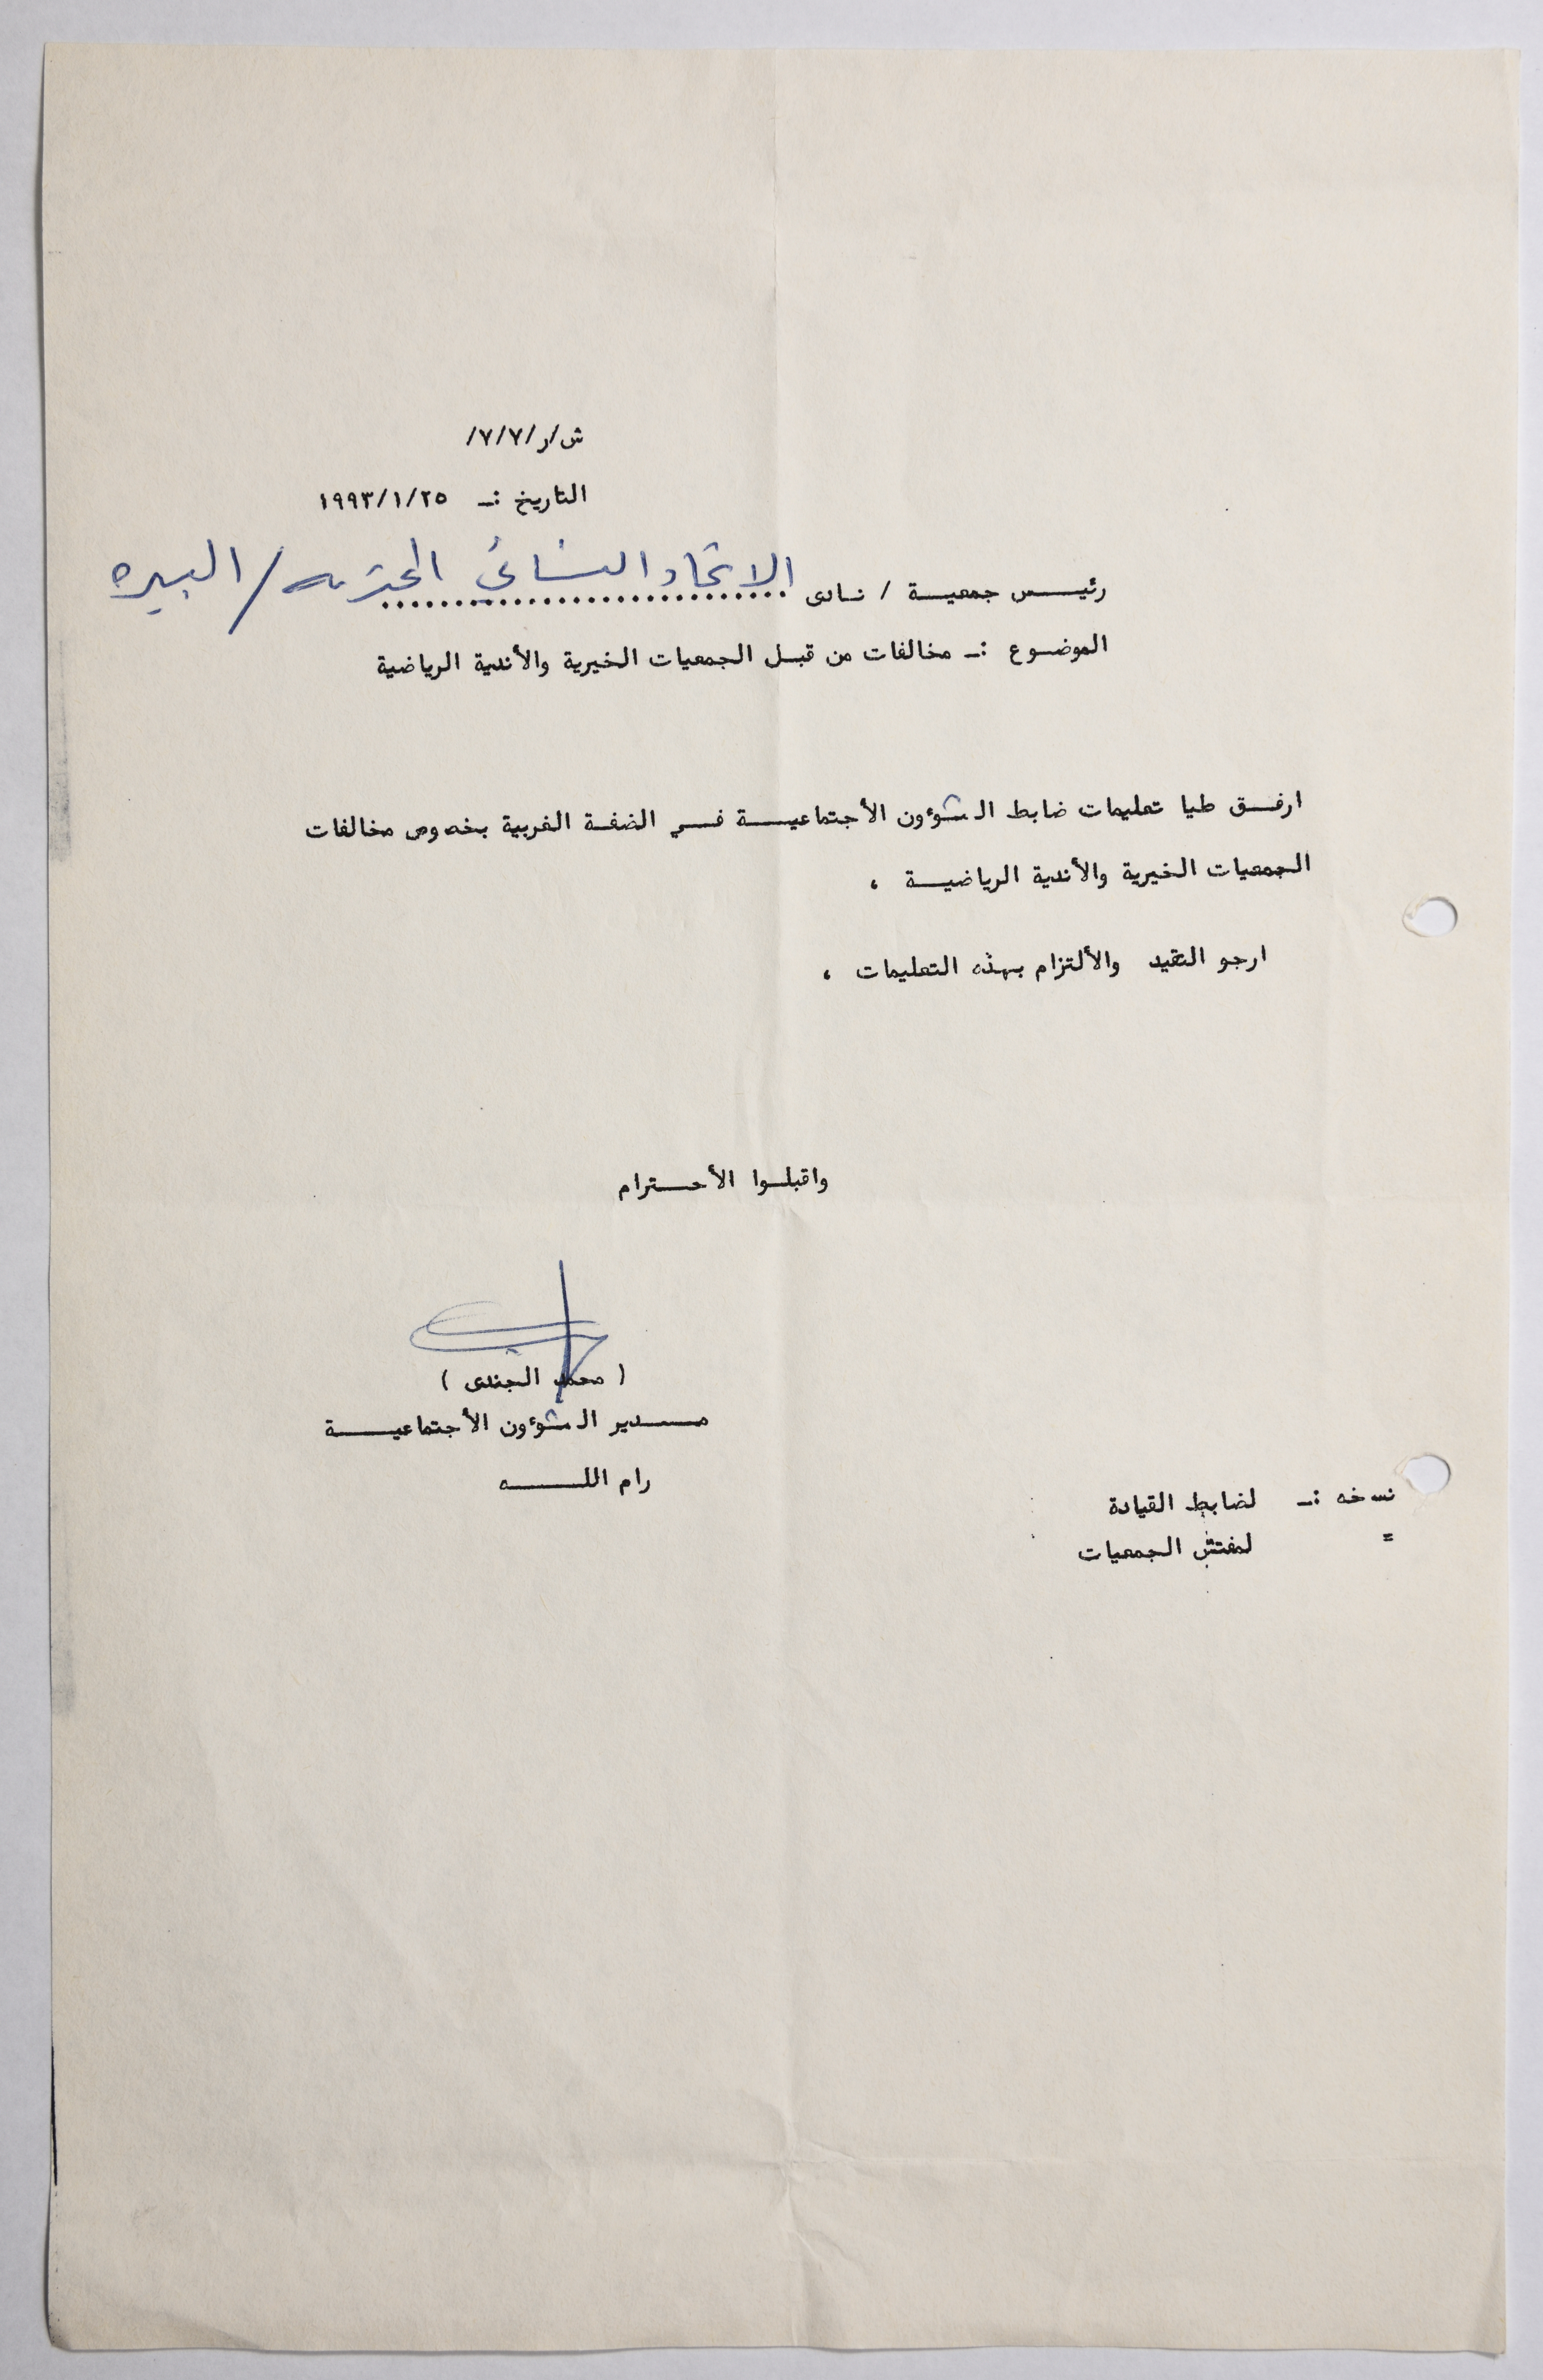 ش/ر/٧/٧/
التاريخ :ـ ١٩٩٣/١/٢٥
رئيس جمعية / نادى الاتحاد النسائي المحترمه / البيره
الموضوع :ـ مخالفات من قبل الجمعيات الخيرية والأندية الرياضية
ارفق طيا تعليمات ضابط الشوؤون الأجتماعية في الضفة الغربية بخصوص مخالفات
الجمعيات الخيرية والأندية الرياضية ،
ارجو التقيد والألتزام بهذه التعليمات ،
واقبلوا الأحترام
( محمد الجندى )
مدير الشوؤون الأجتماعية
رام الله
نسخه :ـ لضابط القيادة
= لمفتش الجمعيات